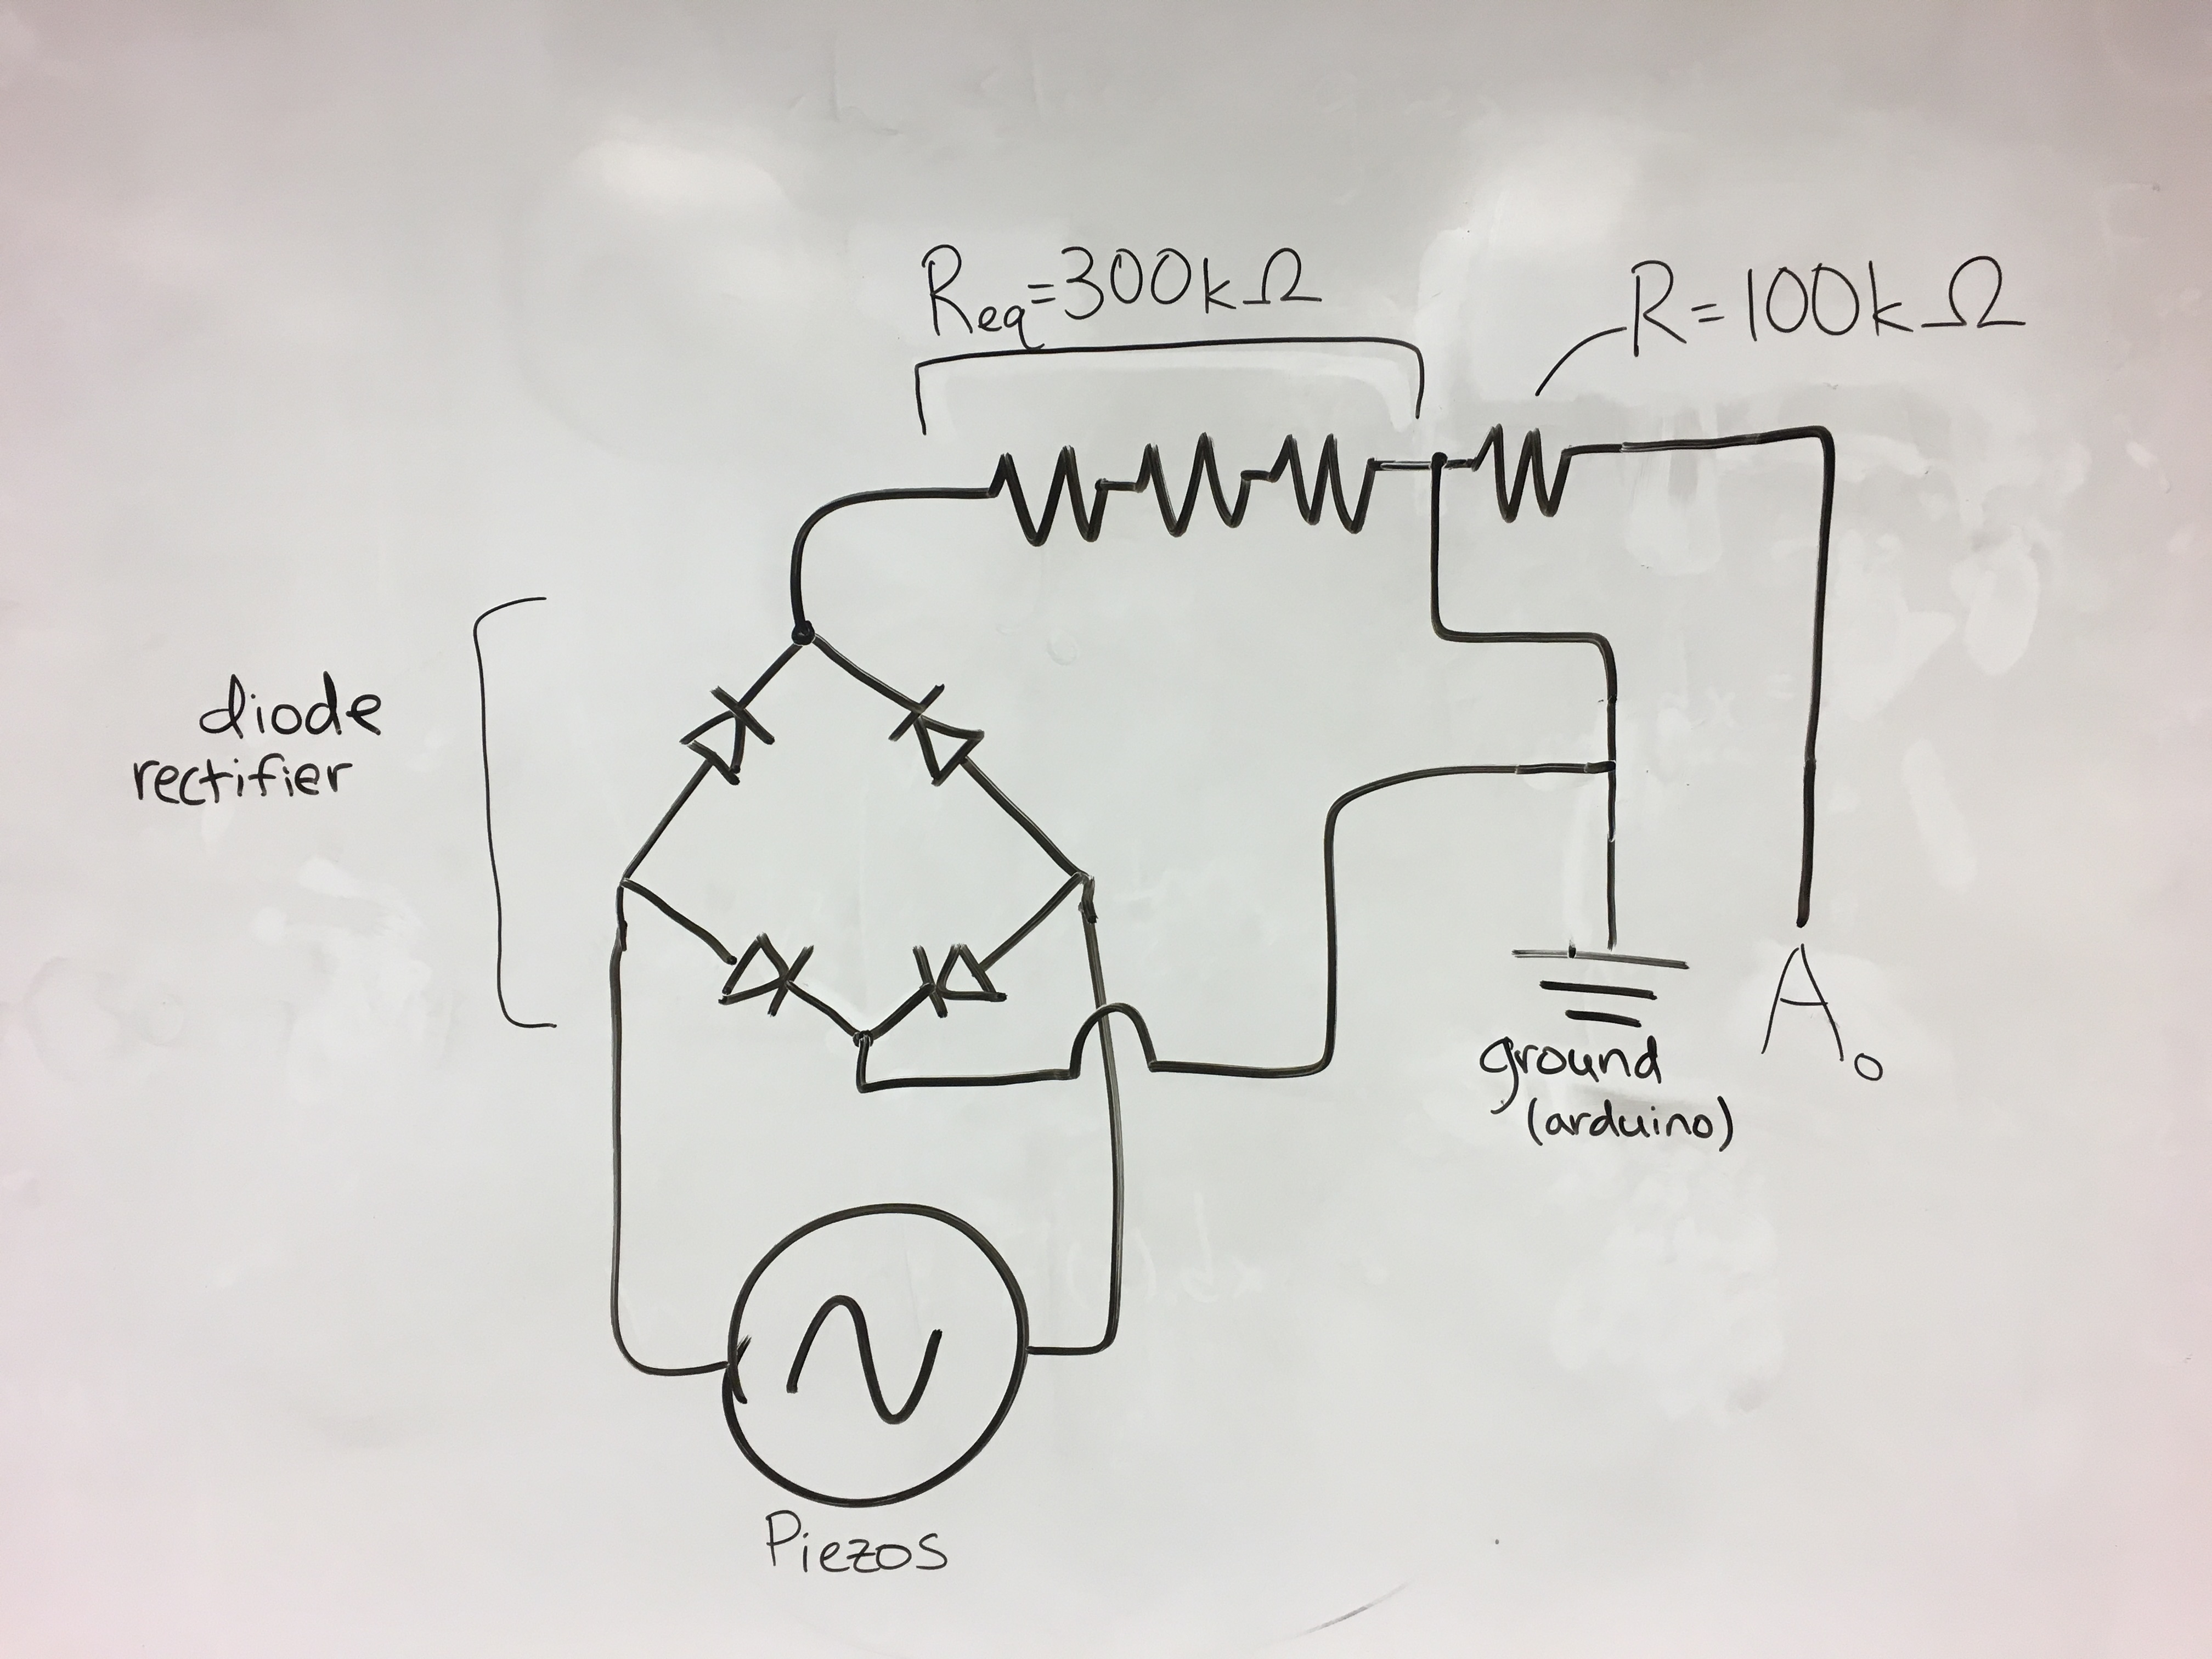 R_eq=300kΩ
R=100kΩ
diode
rectifier
ground
(arduino)
A₀
Piezos